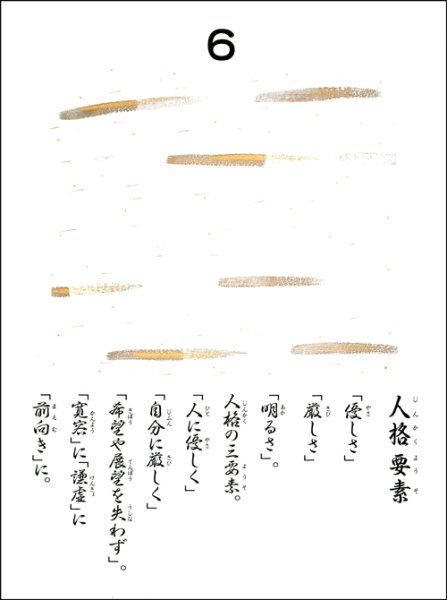 6
人格要素
「優しさ」
「厳しさ」
「明るさ」。
人格の三要素。
「人に優しく」
「自分に厳しく」
「希望や展望を失わず」。
「寛容」に「謙虚」に
「前向き」に。